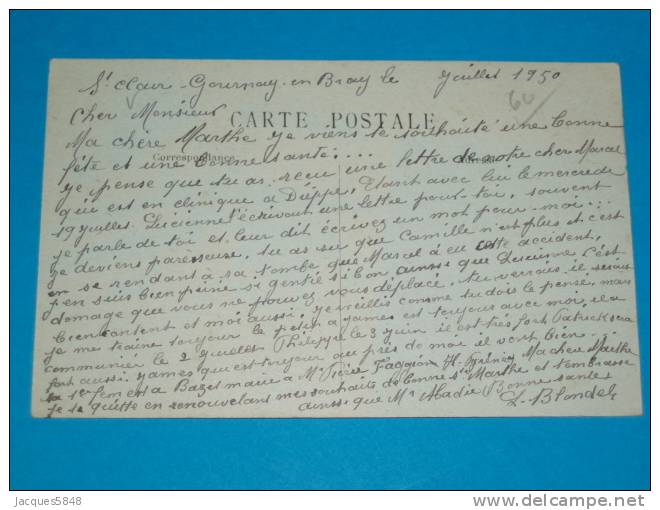 St Clair - Gournay-en Bray le juillet 1950
60
Cher Monsieur
CARTE POSTALE
Ma chère Marthe je viens te souhaité une bonne
Correspondance
fête et une bonne santé...
je pense que tu as recu une lettre de notre cher Marcel
qui est en clinique a Dieppe, Etant avec lui le mercredi
19 juillet. Lucienne écrivait une lettre pour toi, souvent
je parle de toi et leur dit écrivez un mot pour moi...
je deviens paresseuse, tu as su que Camille n'est plus et c'est
en se rendant à sa tombe que Marcel a eu cette accident,
j'en suis bien peine si gentil si bon ainsi que Lucienne C'est
domage que vous ne pouvez vous deplacé, tu verrais il serait
bien content et moi aussi, je vieillis comme tu dois le pense, mais
je me traine toujour le petit james est toujour avec moi, il a
communier le 2 juillet Philippe le 3 juin il est trés fort Patrick sera
fort aussi, james qui est toujour au près de moi il vont bien
est a Bazet marié a Mr
Ma chère Marthe
je te quitte en renouvelant mes souhaits de bonne Ste Marthe et t'embrasse
ainsi que Mr Abadie Bonne santé
L. Blondel
Jacques5848
delcampe.net